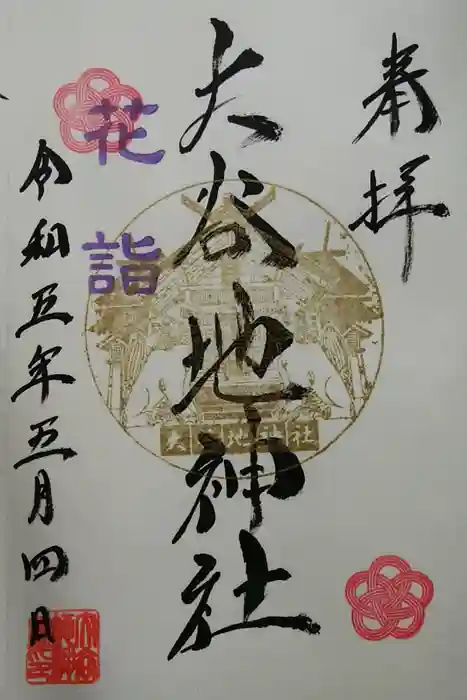 奉拝
大谷地神社
大谷地神社
花詣
令和五年五月四日